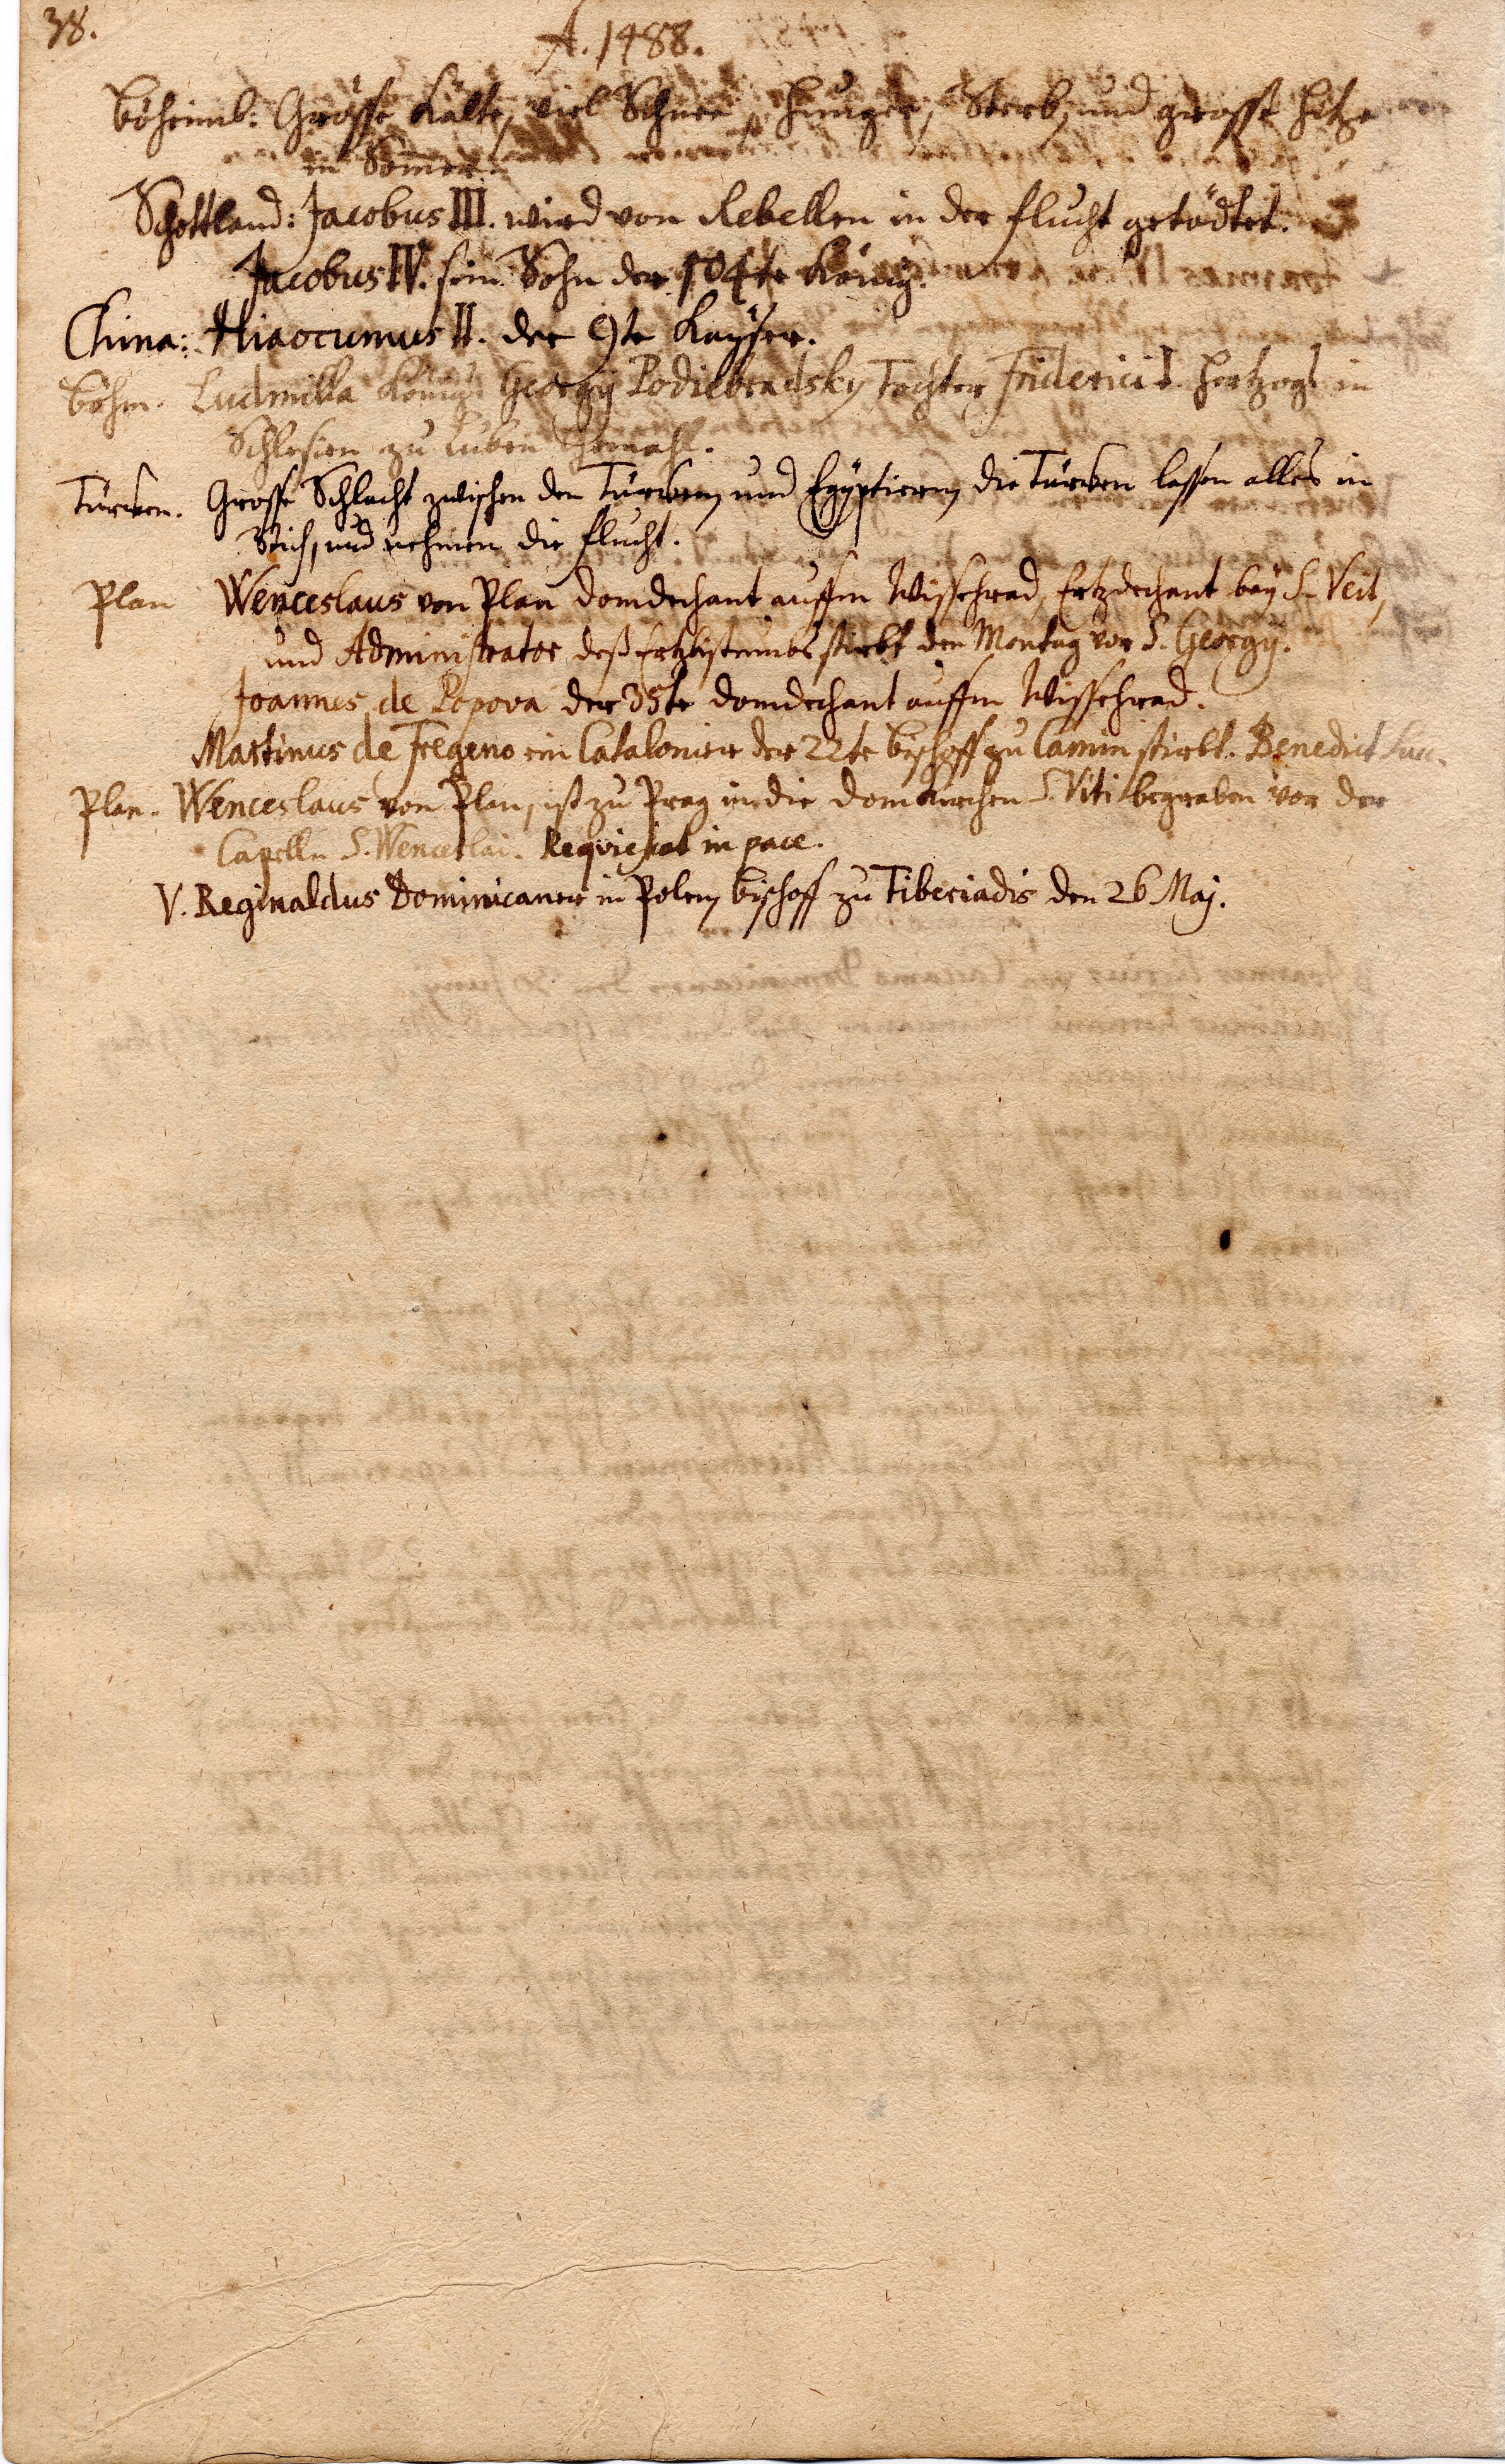 38.
A. 1488.
Böheimb: Grosse Kälte, viel Schnee, Hunger, Sterb, und grosse Hitze
in Somer.
Schottland: Jacobus III. wird von Rebellen in der flucht getödtet.
Jacobus IV. sein Sohn der 104te König.
China: Hiaocumus II. der 9te Kayser.
Böhm. Ludmilla König Georgy Podiebradsky Tochter Friderici I. Hertzogs in
Schlesien zu Luben Gemahl.
Türcken. Grosse Schlacht zwischen den Türcken, und Egÿptiern, die Türcken lassen alles in
Stich, und nehmen die flucht.
Plan Wenceslaus von Plan Domdechant auffm Wissehrad, Ertzdechant beÿ S. Veit,
und Administrator deß Ertzbistumbs stirbt den Montag vor S. Georgÿ.
Joannes de Popova der 35te Domdechant auffm Wissehrad.
Martinus de Fregeno ein Catalonier der 22te Bischoff zu Camin stirbt. Benedict
Plan. Wenceslaus von Plan, ist zu Prag in die Domkirchen S. Viti begraben vor der
Capelln S. Wenceslai. Requiescat in pace.
V. Reginaldus Dominicaner in Polen, Bischoff zu Tiberiadis den 26 Maj.